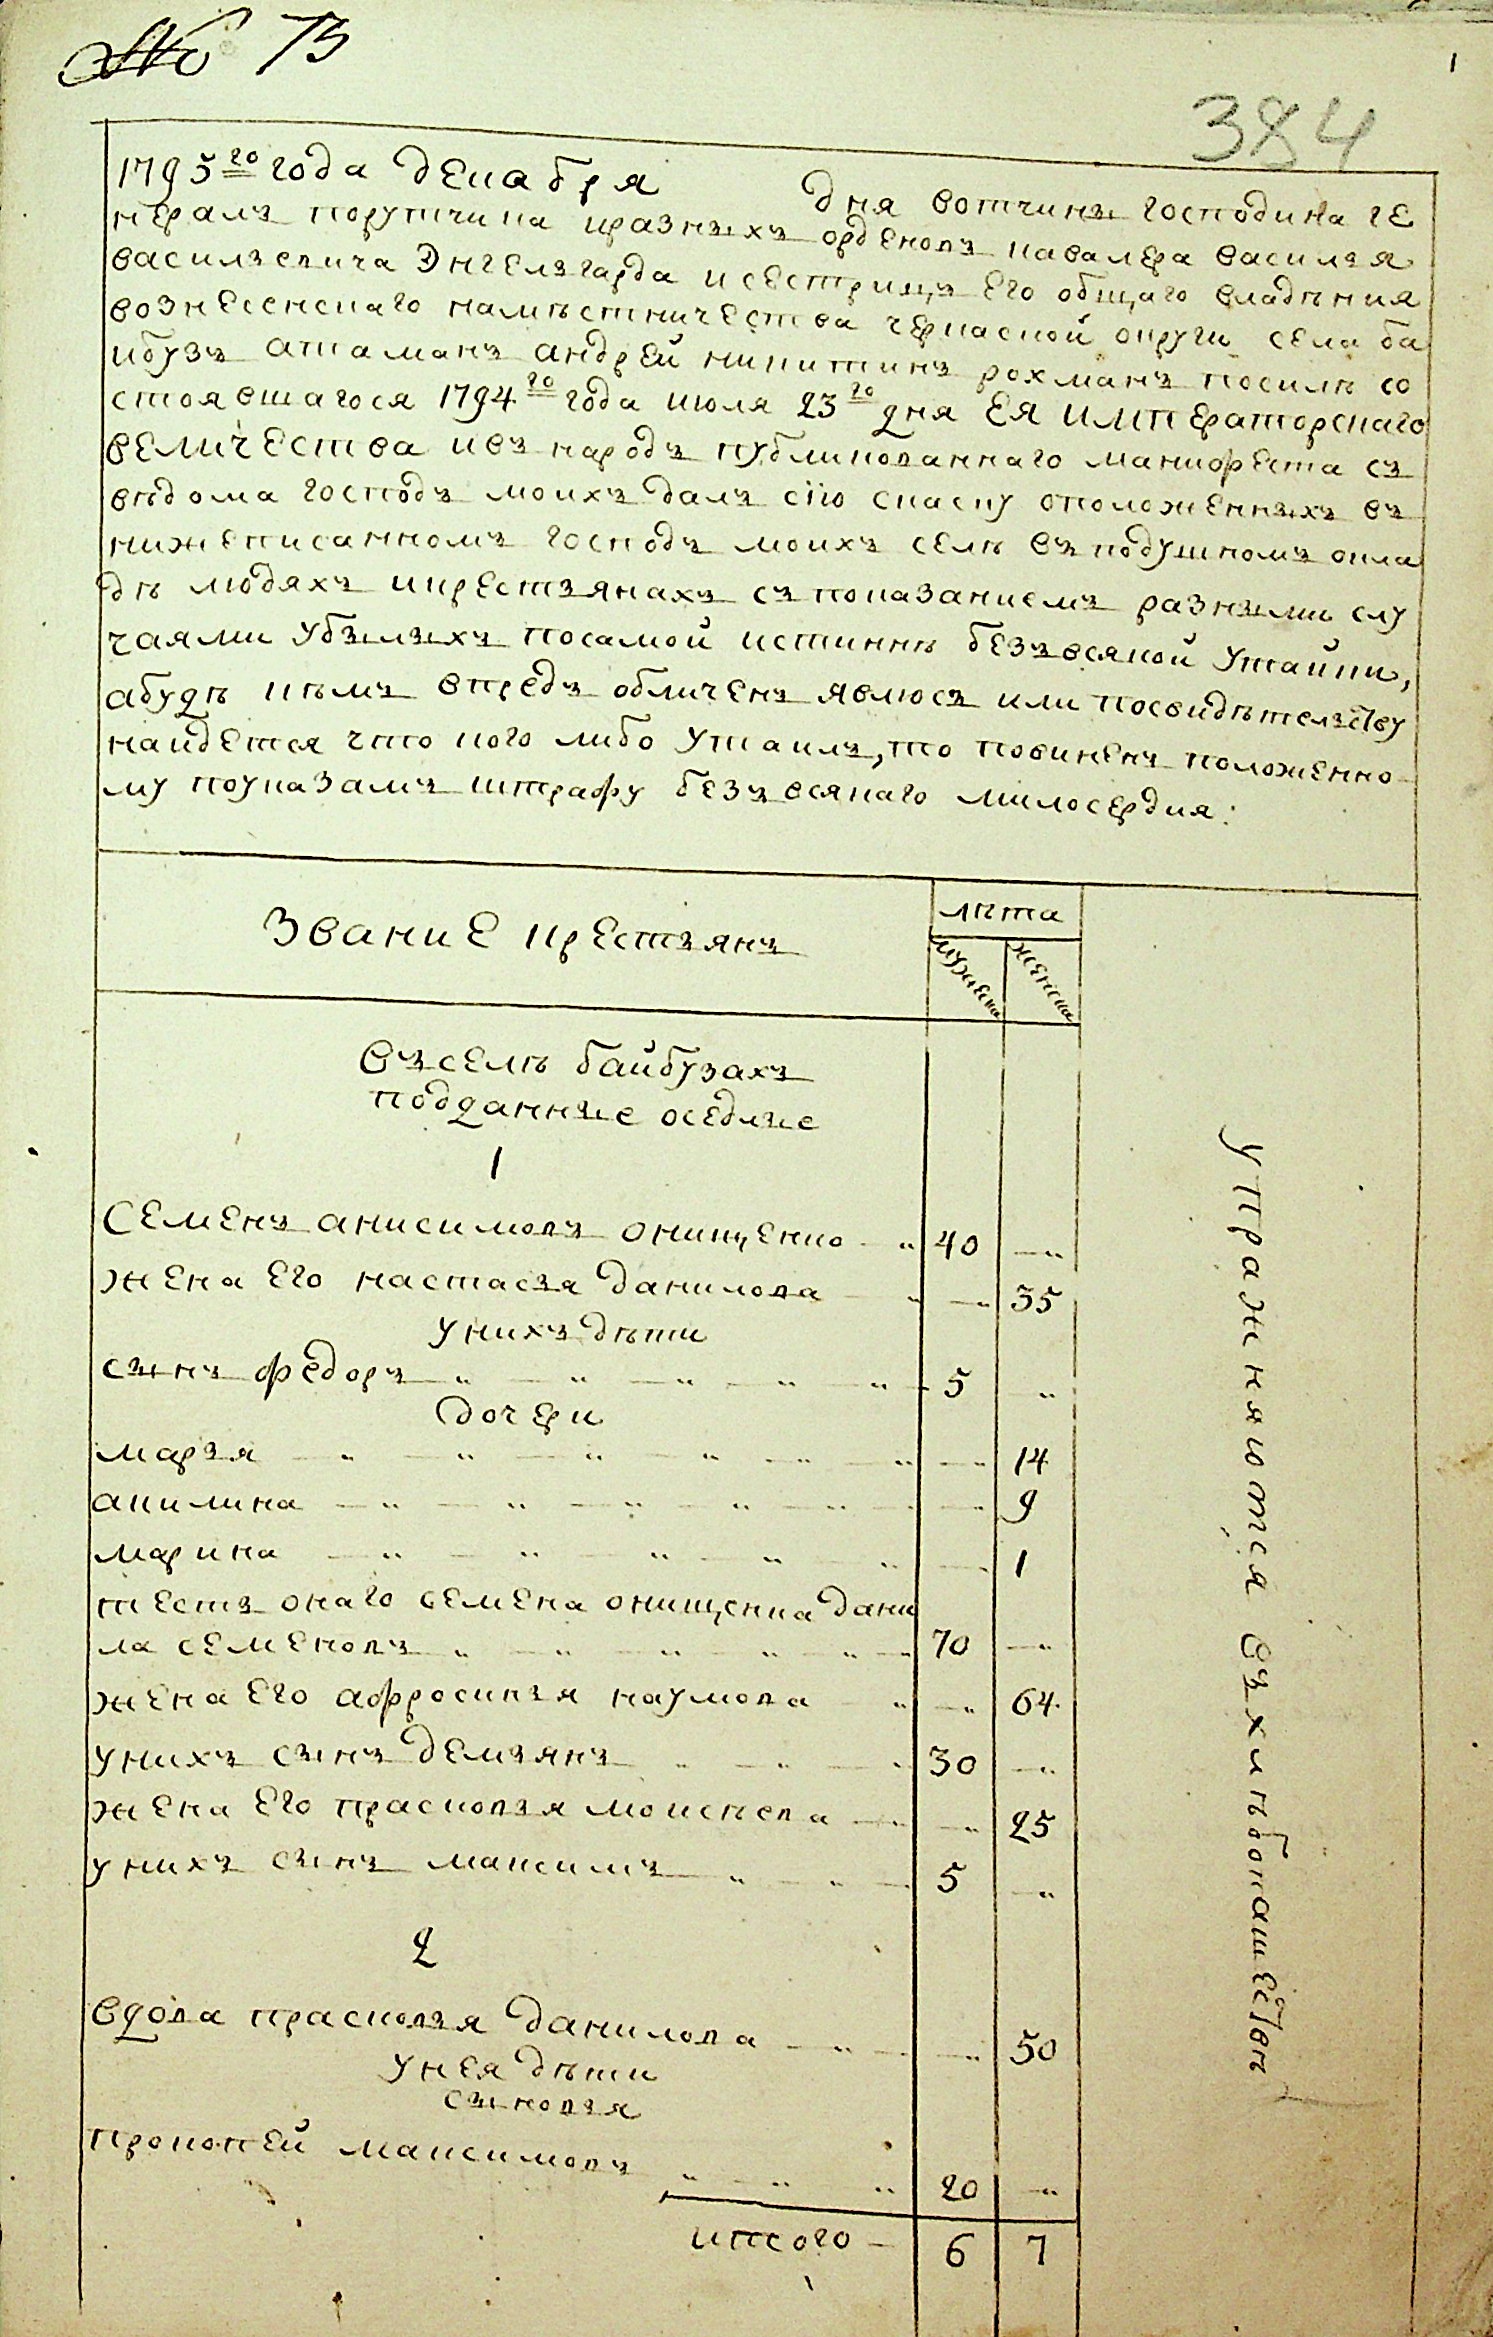 № 73
1
384
1795го года декабря дня вотчины господина ге
нералъ порутчика иразныхъ орденовъ кавалера василья
васильевича Энгельгарда исестрицъ его общаго владѣния
вознесенскаго намѣстничества черкаской округи села ба
ибузъ атаманъ андрей никитинъ рохманъ посилѣ со
стоявшагося 1794го года июля 23го дня ЕЯ ИМПЕраторскаго
вЕличЕства ивъ народъ публикованнаго манифеста съ
вѣдома господъ моихъ далъ сiю скаску оположенныхъ въ
нижеписанномъ господъ моихъ селѣ въ подушномъ окла
дѣ людяхъ икрестьянахъ съ показаниемъ разными слу
чаями убылыхъ посамой истиннѣ безъ всякой утайки,
абудѣ кѣмъ впредъ обличенъ явлюсъ или посвидѣтельству
найдется что кого либо утаилъ, то повиненъ положенно
му поуказамъ штрафу безъ всякаго милосердия:
Звание крестьянъ
лѣта
мужеска
женска
въ селѣ байбузахъ
подданные оседлые
1
Семенъ анисимовъ онищенко 40
жена его настасья данилова 35
унихъ дѣти
сынъ федоръ 5
дочери
марья 14
акилина 9
марина 1
тесть онаго семена онищенка дани
ла семеновъ 70
жена его афросинья наумова 64
унихъ сынъ демьянъ 30
жена его прасковья моисѣева 25
унихъ сынъ максимъ 5
2
вдова прасковья данилова 50
унея дѣти
сыновья
прокопей максимовъ 20
итого 6 7
упражняются въ хлѣбопашествѣ